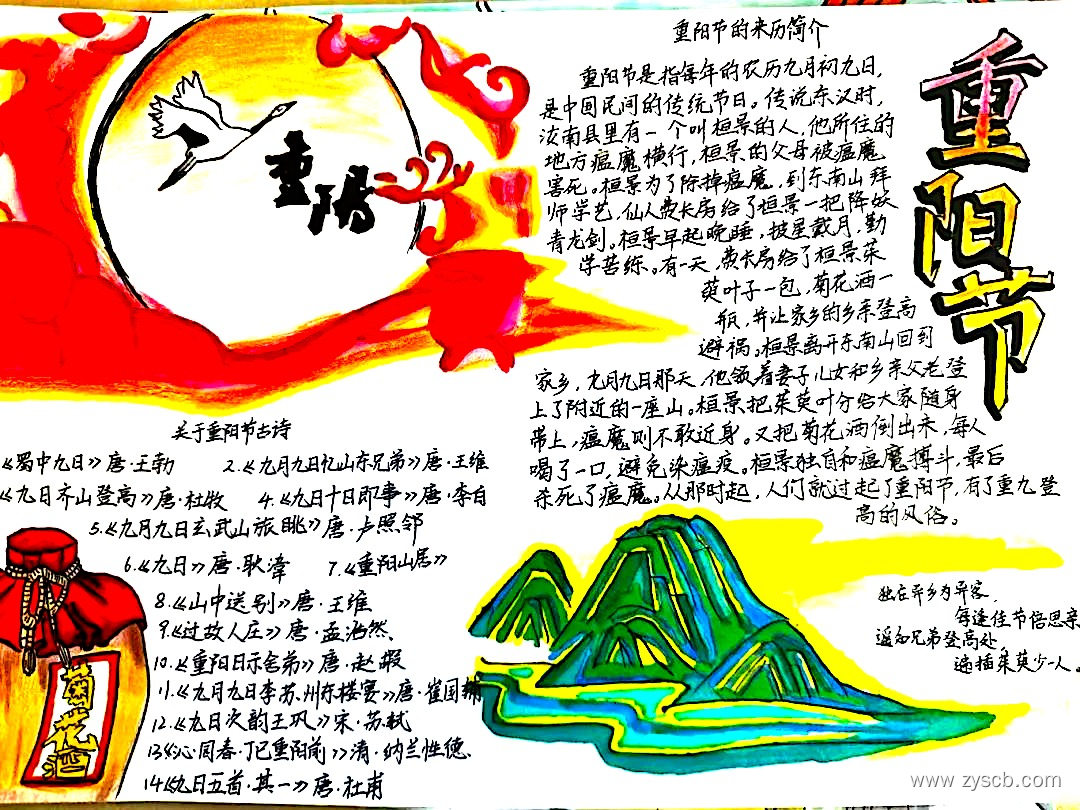 重陽
重阳节
重阳节的来历简介
重阳节是指每年的农历九月初九日,
是中国民间的传统节日。传说东汉时,
汝南县里有一个叫桓景的人,他所住的
地方瘟魔横行,桓景的父母被瘟魔
害死。桓景为了除掉瘟魔,到东南山拜
师学艺,仙人费长房给了桓景一把降妖
青龙剑。桓景早起晚睡,披星戴月,勤
学苦练。有一天,费长房给了桓景茱
萸叶子一包,菊花酒一
瓶,并让家乡的乡亲登高
避祸。桓景离开东南山回到
家乡,九月九日那天,他领着妻子儿女和乡亲父老登
上了附近的一座山。桓景把茱萸叶分给大家随身
带上,瘟魔则不敢近身。又把菊花酒倒出来,每人
喝了一口,避免染瘟疫。桓景独自和瘟魔搏斗,最后
杀死了瘟魔。从那时起,人们就过起了重阳节,有了重九登
高的风俗。
关于重阳节古诗
《蜀中九日》唐·王勃 2.《九月九日忆山东兄弟》唐·王维
《九日齐山登高》唐·杜牧 4.《九日十日即事》唐·李白
5.《九月九日玄武山旅眺》唐·卢照邻
6.《九日》唐·耿湋 7.《重阳山居》
8.《山中送别》唐·王维
9.《过故人庄》唐·孟浩然、
10.《重阳日示舍弟》唐·赵嘏
11.《九月九日李苏、州东楼宴》唐·崔国辅
12.《九日次韵王巩》宋·苏轼
13.《沁园春·丁巳重阳前》清·纳兰性德、
14《九日五首·其一》唐·杜甫
菊花酒
独在异乡为异客,
每逢佳节倍思亲
遥知兄弟登高处,
遍插茱萸少一人。
www.zyscb.com